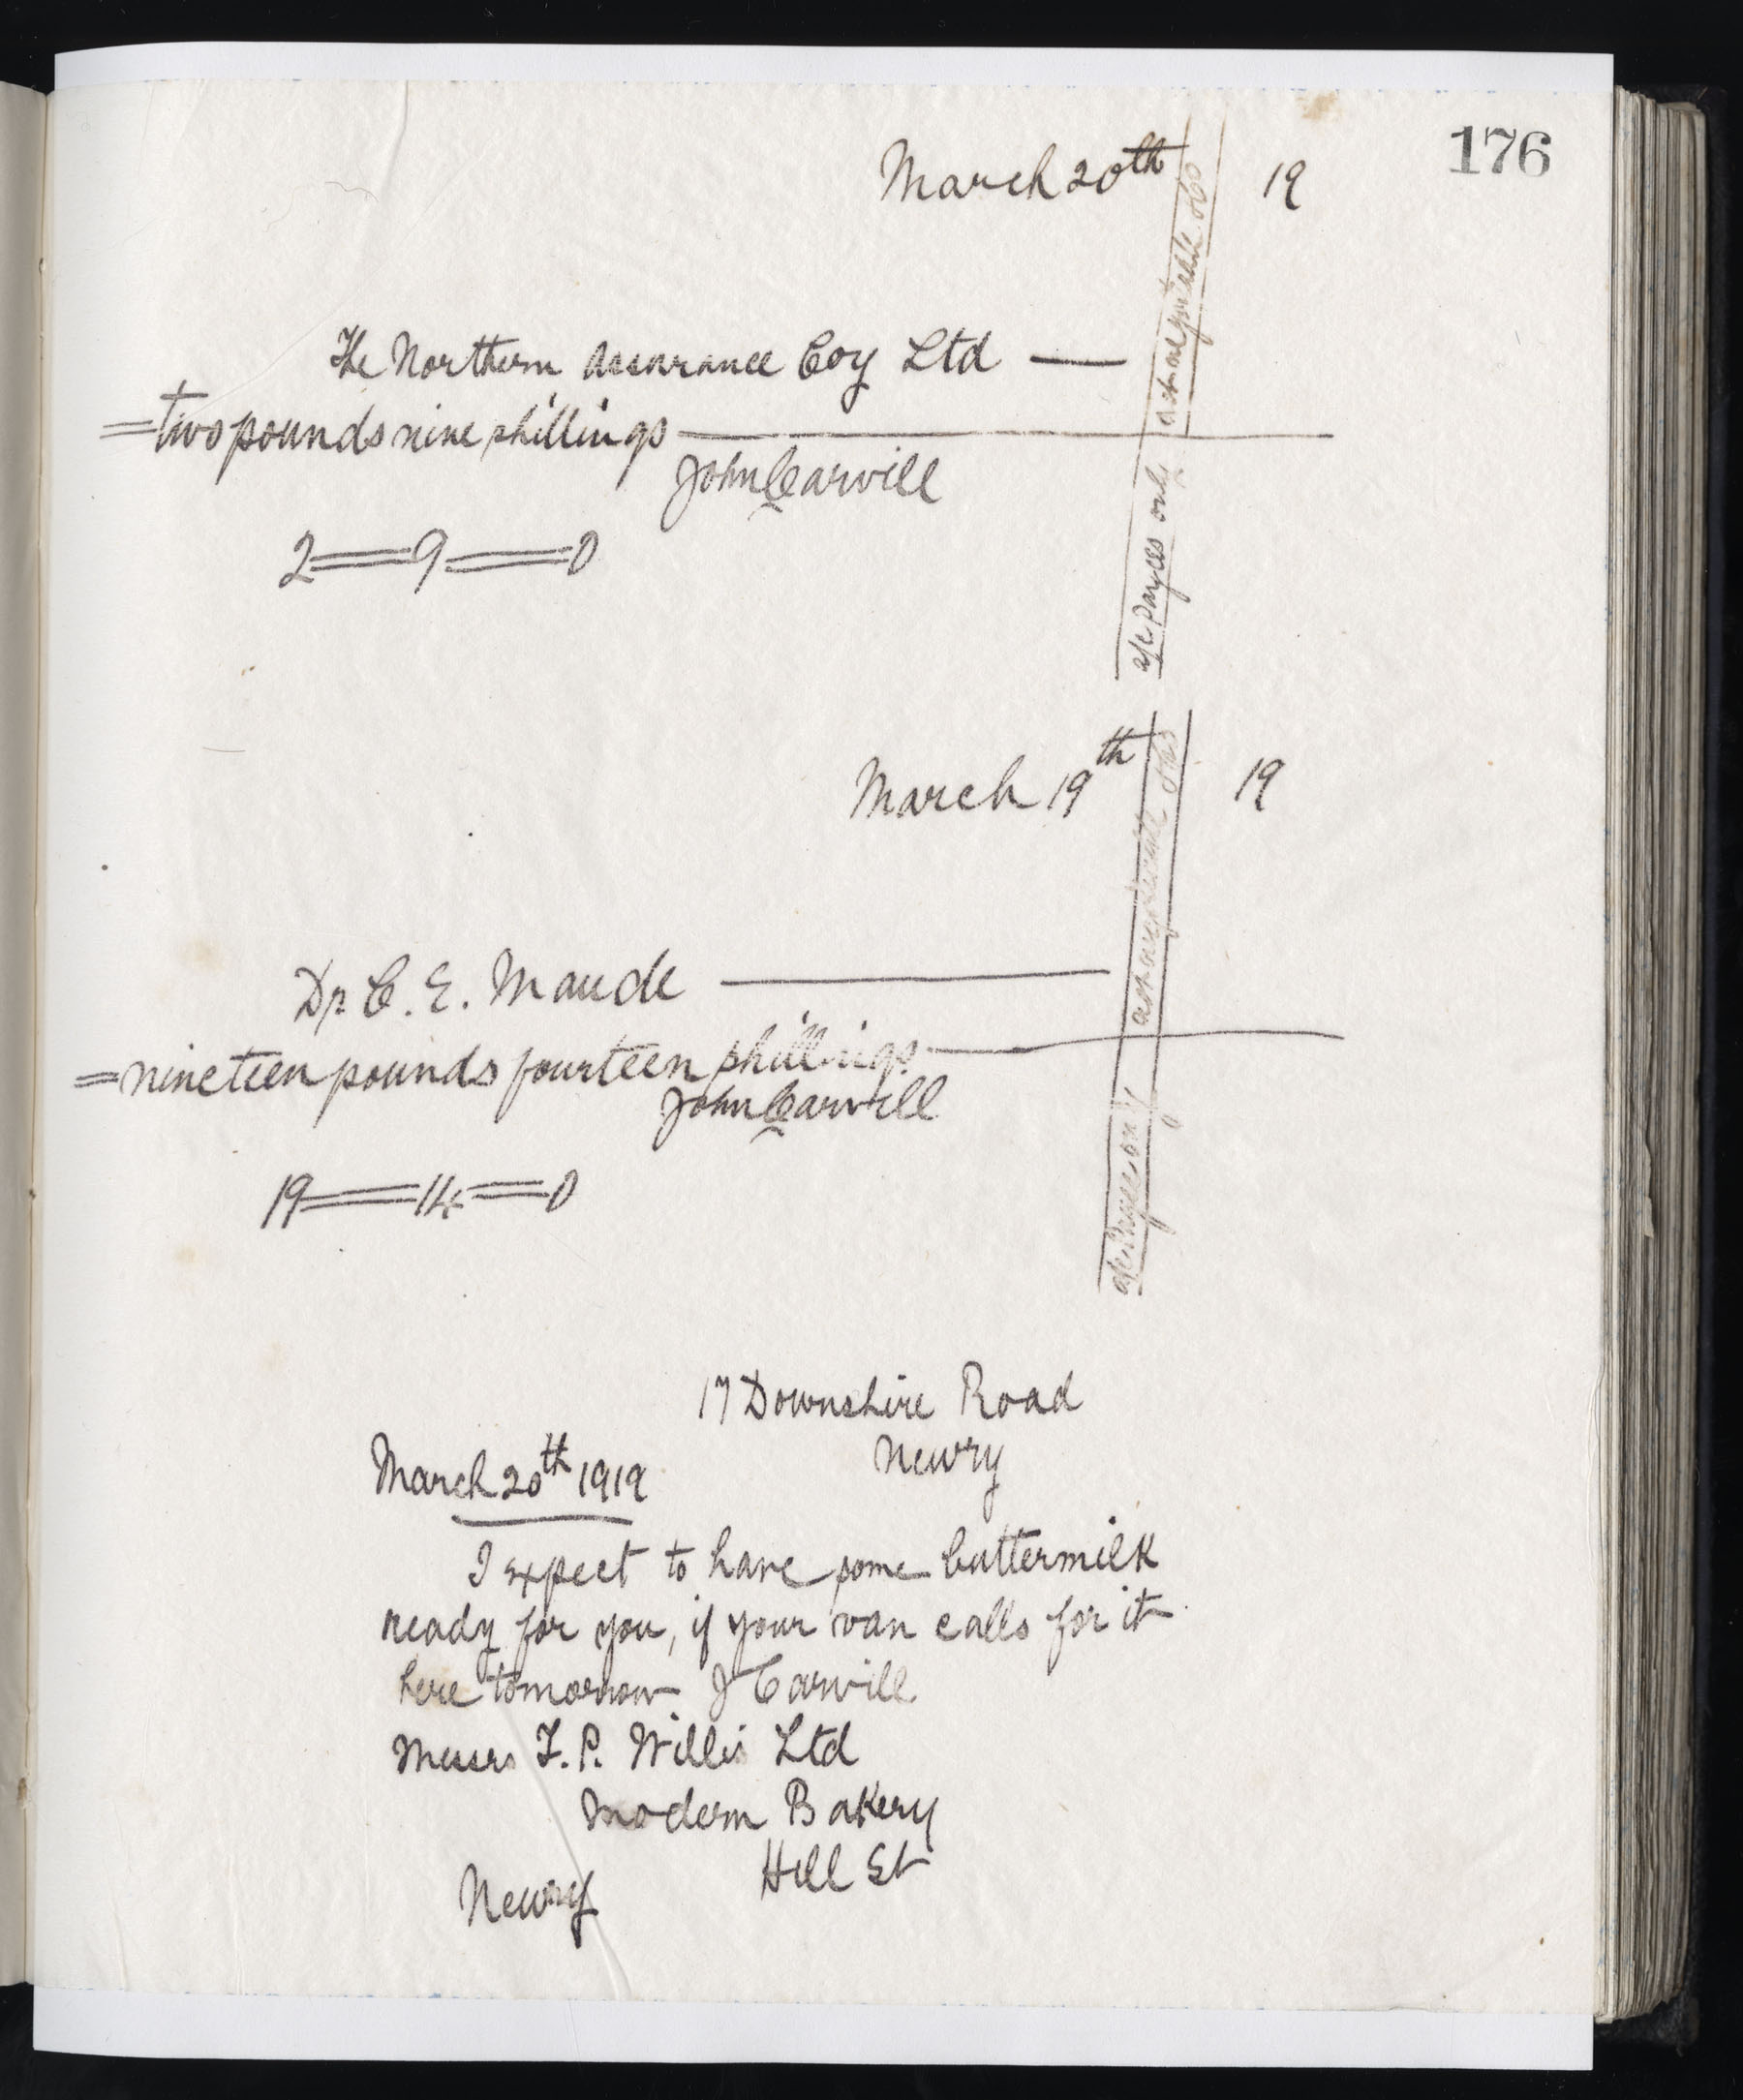 176
March 20th 19
The Northern Assurance Coy Ltd —
=two pounds nine shillings —
John Carvill
2==9==0
a/c payees only not negotiable
March 19th 19
Dr C. E. Maude —
=nineteen pounds fourteen shillings —
John Carvill
19==14==0
a/c Payees only not negotiable
17 Downshire Road
Newry
March 20th 1919
I expect to have some buttermilk
ready for you, if your van calls for it
here tomorrow J Carvill
Messrs F. P. Willis Ltd
Modern Bakery
Hill St
Newry